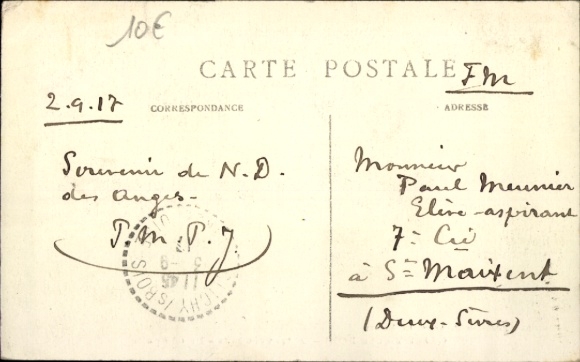 10€
CARTE POSTALE
FM
2.9.17
CORRESPONDANCE
ADRESSE
Souvenir de N.D.
des Anges-
P.M.P.J.
Monsieur
Paul Meunier
Elève-aspirant
7e Cie
à St Maixent
(Deux-Sèvres)